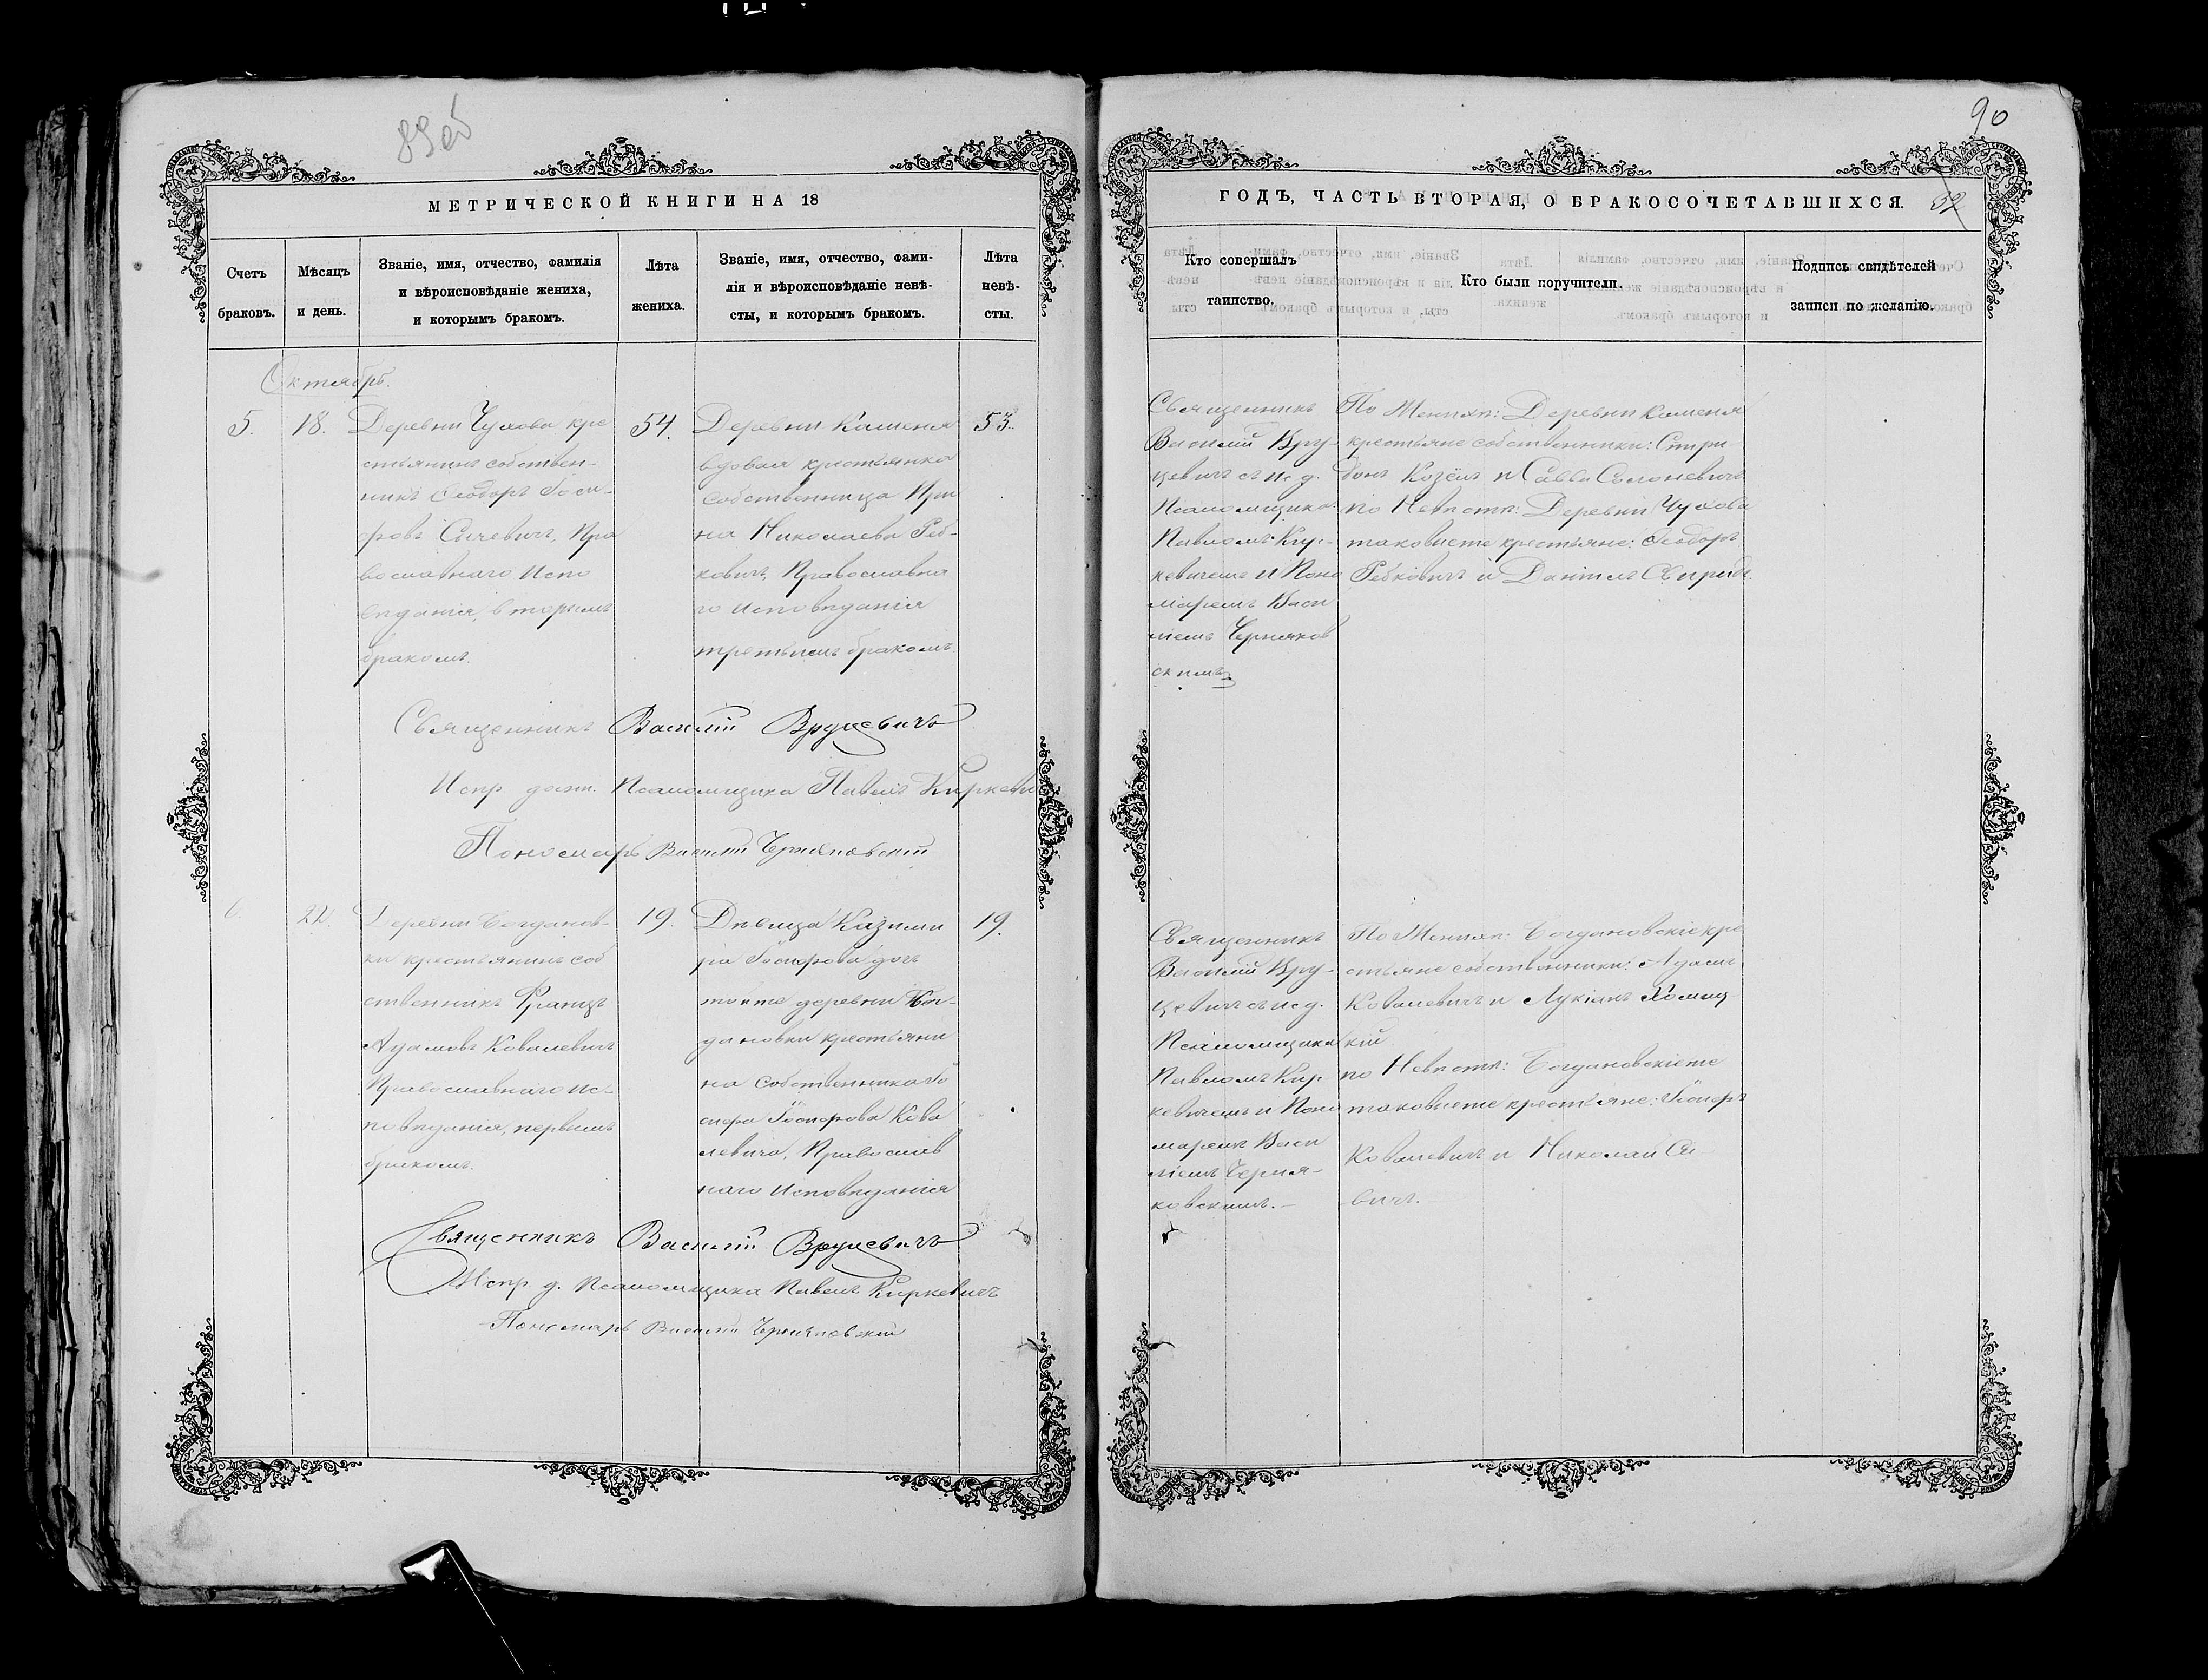 89об
90
32
МЕТРИЧЕСКОЙ КНИГИ НА 18
Счетъ браковъ.
Мѣсяцъ и день.
Званіе, имя, отчество, фамилія
и вѣроисповѣданіе жениха,
и которымъ бракомъ.
Лѣта жениха.
Званіе, имя, отчество, фами-
лія и вѣроисповѣданіе невѣ-
сты, и которымъ бракомъ.
Лѣта невѣ-
сты.
Октябрь.
5.
18.
Деревни Чухова кре
стьянинъ собствен-
никъ Ѳеодоръ Іоси-
фовъ Сачевичъ, Пра
вославнаго Испо
вѣданія, вторымъ
бракомъ.
54.
Деревни Каменя
вдовая крестьянка
собственница Ири
на Николаева Реб-
ковичъ, Православна
го исповѣданія
третьимъ бракомъ.
53.
Священникъ Василій Вруцевичъ
Испр. долж. Псаломщика Павелъ Киркеви
Пономарь Василій Черняковскій
6.
22.
Деревни Богданов-
ки крестьянинъ соб
ственникъ Францъ
Адамовъ Ковалевичъ
Православнаго ис-
повѣданія, первымъ
бракомъ.
19.
Дѣвица Казими
ра Іосифова дочь
тойже деревни Бог-
дановки крестьяни
на собственника Іо
сифа Іосифова Кова
левича, Православ
наго исповѣданія
19.
Священникъ Василій Вруцевичъ
Испр. д. Псаломщика Павелъ Киркевичъ
Пономарь Василій Черняковскій
ГОДЪ, ЧАСТЬ ВТОРАЯ, О БРАКОСОЧЕТАВШИХСЯ.
Кто совершалъ
таинство.
Кто были поручители.
Подпись свидѣтелей
записи по желанію.
Священникъ
Василій Вру-
цевичъ съ и. д.
Псаломщика
Павломъ Кир-
кевичемъ и Поно
маремъ Васи
ліемъ Черняков
скимъ
По Женихѣ: Деревни Каменя
крестьяне собственники: Спири
донъ Козёлъ и Савва Сѣлоневичъ
по Невѣстѣ: Деревни Чухова
таковыеже крестьяне: Ѳеодоръ
Ребковичъ и Даніилъ
Священникъ
Василій Вру-
цевичъ съ и. д.
Псаломщика
Павломъ Кир-
кевичемъ и Поно
маремъ Васи
ліемъ Черня-
ковскимъ.
По Женихѣ: Богдановскіе кре
стьяне собственники: Адамъ
Ковалевичъ и Лукіанъ Хомиц
кій
по Невѣстѣ: Богдановскіеже
таковыеже крестьяне: Іосифъ
Ковалевичъ и Николай
вичъ.